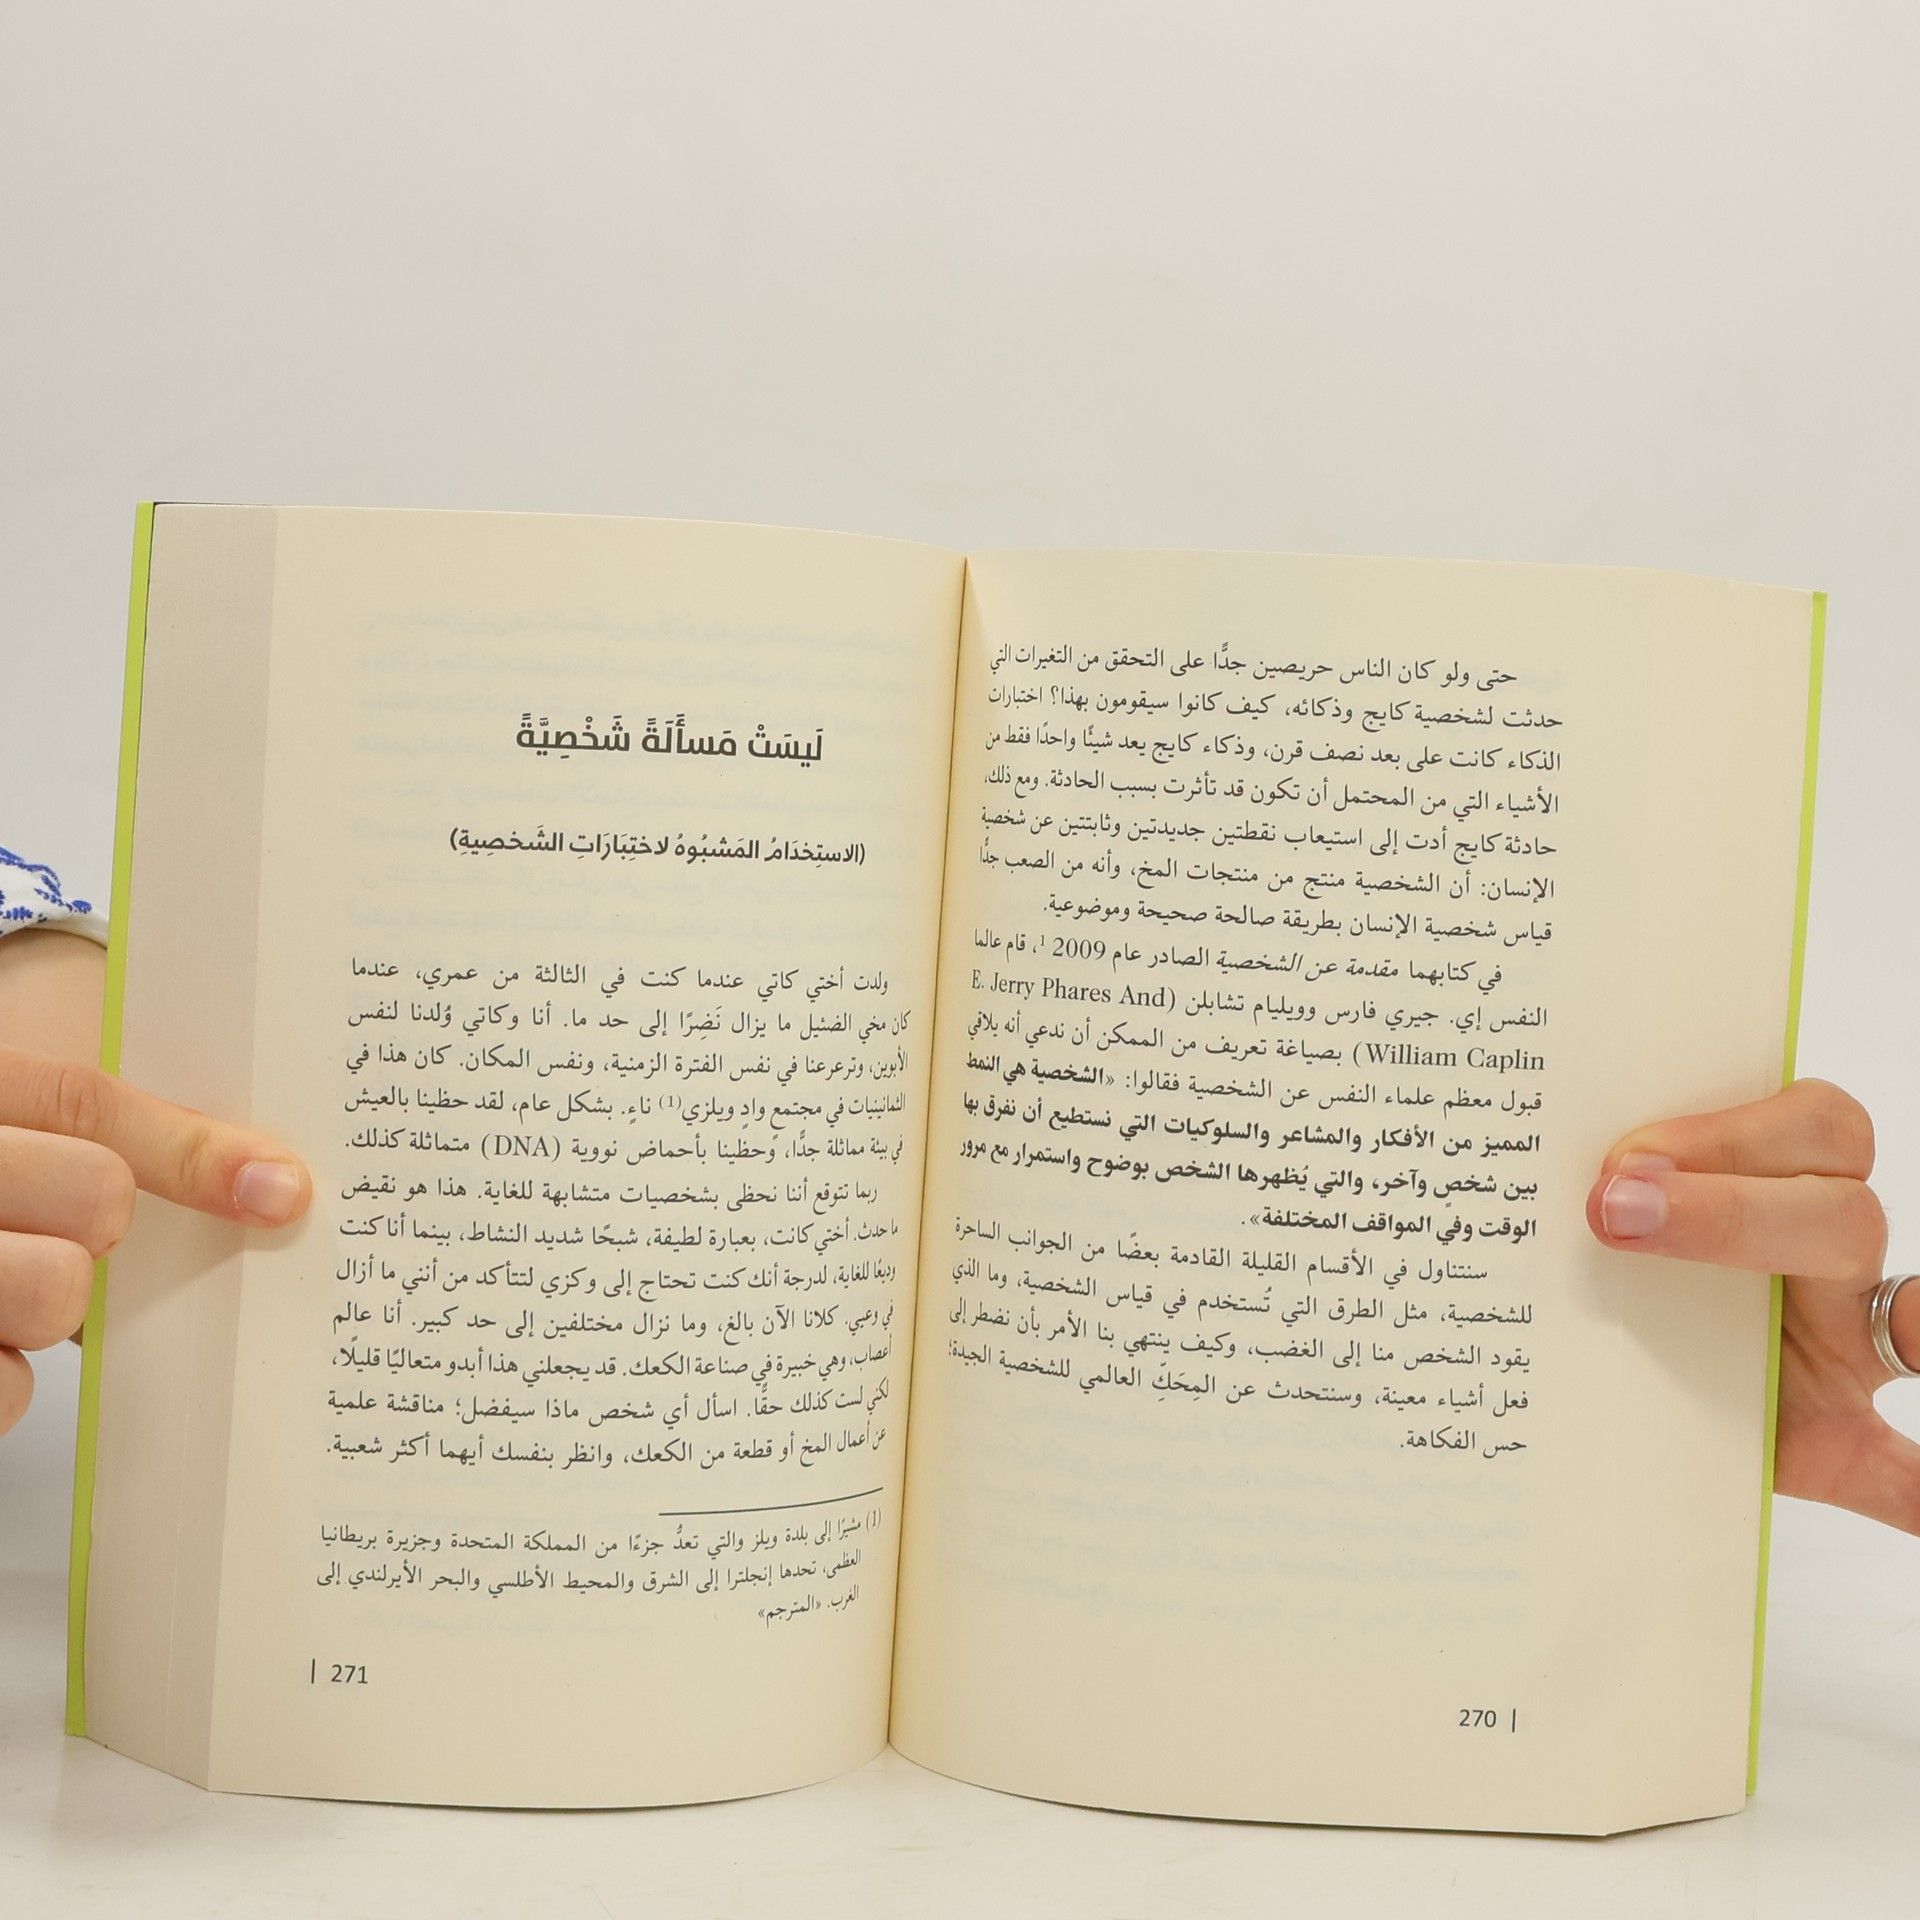 حتى ولو كان الناس حريصين جدًّا على التحقق من التغيرات التي
حدثت لشخصية كايج وذكائه، كيف كانوا سيقومون بهذا؟ اختبارات
الذكاء كانت على بعد نصف قرن، وذكاء كايج يعد شيئًا واحدًا فقط من
الأشياء التي من المحتمل أن تكون قد تأثرت بسبب الحادثة. ومع ذلك،
حادثة كايج أدت إلى استيعاب نقطتين جديدتين وثابتتين عن شخصية
الإنسان: أن الشخصية منتج من منتجات المخ، وأنه من الصعب جدًّا
قياس شخصية الإنسان بطريقة صالحة صحيحة وموضوعية.
في كتابهما مقدمة عن الشخصية الصادر عام 2009 ¹، قام عالما
النفس إي. جيري فارس وويليام تشابلن (E. Jerry Phares And
William Caplin) بصياغة تعريف من الممكن أن ندعي أنه يلاقي
قبول معظم علماء النفس عن الشخصية فقالوا: «الشخصية هي النمط
المميز من الأفكار والمشاعر والسلوكيات التي نستطيع أن نفرق بها
بين شخصٍ وآخر، والتي يُظهرها الشخص بوضوح واستمرار مع مرور
الوقت وفي المواقف المختلفة».
سنتناول في الأقسام القليلة القادمة بعضًا من الجوانب الساحرة
للشخصية، مثل الطرق التي تُستخدم في قياس الشخصية، وما الذي
يقود الشخص منا إلى الغضب، وكيف ينتهي بنا الأمر بأن نضطر إلى
فعل أشياء معينة، وسنتحدث عن المِحَكِّ العالمي للشخصية الجيدة؛
حس الفكاهة.
270 |
لَيسَتْ مَسأَلَةً شَخْصِيَّةً
(الاستِخدَامُ المَشبُوهُ لاختِبَارَاتِ الشَّخصِيةِ)
ولدت أختي كاتي عندما كنت في الثالثة من عمري، عندما
كان مخي الضئيل ما يزال نَضِرًا إلى حد ما. أنا وكاتي وُلدنا لنفس
الأبوين، وترعرعنا في نفس الفترة الزمنية، ونفس المكان. كان هذا في
الثمانينيات في مجتمعٍ وادٍ ويلزي(1) ناءٍ. بشكل عام، لقد حظينا بالعيش
في بيئة مماثلة جدًّا، وحظينا بأحماض نووية (DNA) متماثلة كذلك.
ربما تتوقع أننا نحظى بشخصيات متشابهة للغاية. هذا هو نقيض
ما حدث. أختي كانت، بعبارة لطيفة، شبحًا شديد النشاط، بينما أنا كنت
وديعًا للغاية، لدرجة أنك كنت تحتاج إلى وكزي لتتأكد من أنني ما أزال
في وعيي. كلانا الآن بالغ، وما نزال مختلفين إلى حد كبير. أنا عالم
أعصاب، وهي خبيرة في صناعة الكعك. قد يجعلني هذا أبدو متعاليًا قليلًا،
لكني لست كذلك حقًّا. اسأل أي شخص ماذا سيفضل؛ مناقشة علمية
عن أعمال المخ أو قطعة من الكعك، وانظر بنفسك أيهما أكثر شعبية.
(1) مشيرًا إلى بلدة ويلز والتي تعدُّ جزءًا من المملكة المتحدة وجزيرة بريطانيا
العظمى، تحدها إنجلترا إلى الشرق والمحيط الأطلسي والبحر الأيرلندي إلى
الغرب. «المترجم»
| 271